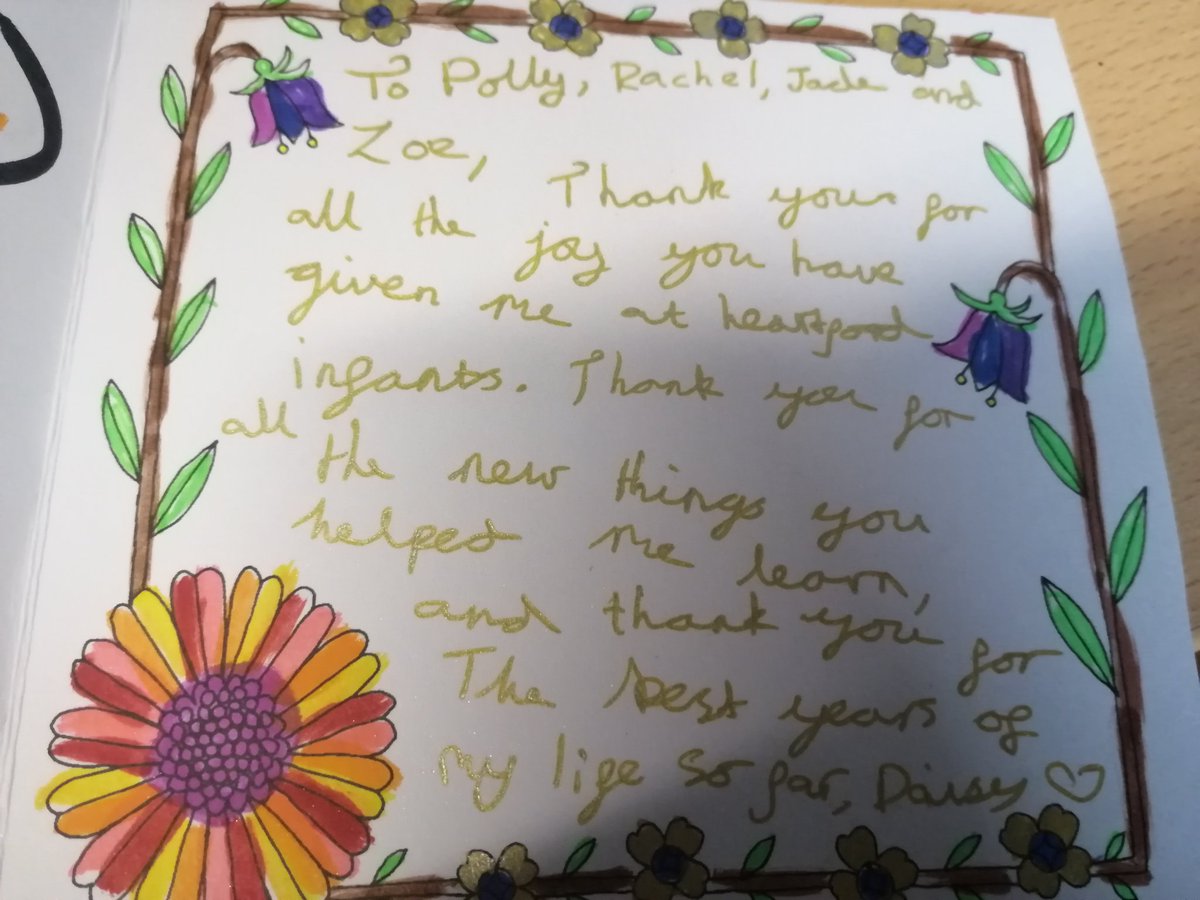 To Polly, Rachel, Jade and
Zoe,
Thank you for
all the joy you have
given me at heartford
infants. Thank you for
all the new things you
helped me learn,
and thank you for
The best years of
my life so far, Daisy